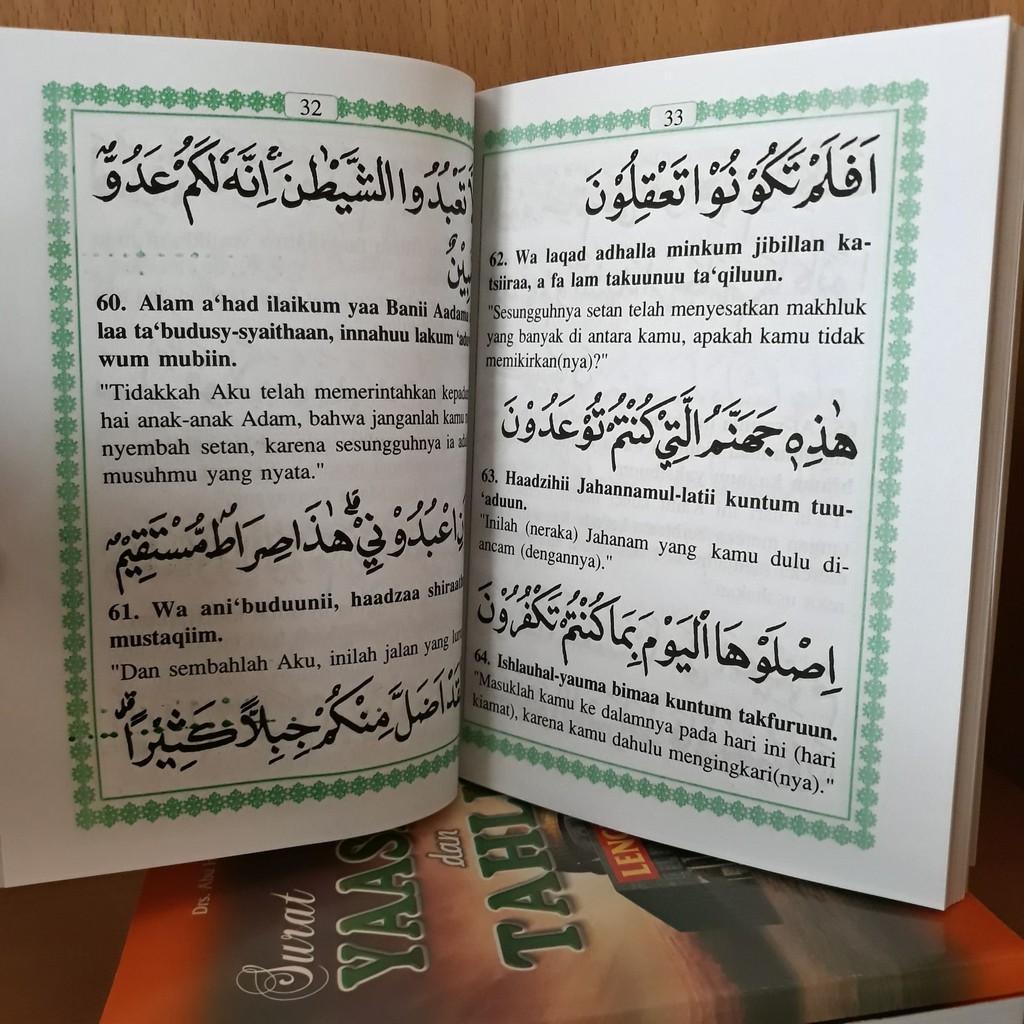 32
تَعْبُدُوا الشَّيْطٰنَ ۚ اِنَّهٗ لَكُمْ عَدُوٌّ
60. Alam a‘had ilaikum yaa Banii Aadama
laa ta‘budusy-syaithaan, innahuu lakum
wum mubiin.
"Tidakkah Aku telah memerintahkan
hai anak-anak Adam, bahwa janganlah kamu
nyembah setan, karena sesungguhnya ia
musuhmu yang nyata."
اعْبُدُوْنِيْ ۗ هٰذَا صِرَاطٌ مُّسْتَقِيْمٌ
61. Wa ani‘buduunii, haadzaa
mustaqiim.
"Dan sembahlah Aku, inilah jalan yang
اَضَلَّ مِنْكُمْ جِبِلًّا كَثِيْرًا ۗ
33
اَفَلَمْ تَكُوْنُوْا تَعْقِلُوْنَ
62. Wa laqad adhalla minkum jibillan ka-
tsiiraa, a fa lam takuunuu ta‘qiluun.
"Sesungguhnya setan telah menyesatkan makhluk
yang banyak di antara kamu, apakah kamu tidak
memikirkan(nya)?"
هٰذِهٖ جَهَنَّمُ الَّتِيْ كُنْتُمْ تُوْعَدُوْنَ
63. Haadzihii Jahannamul-latii kuntum tuu-
‘aduun.
"Inilah (neraka) Jahanam yang kamu dulu di-
ancam (dengannya)."
اِصْلَوْهَا الْيَوْمَ بِمَا كُنْتُمْ تَكْفُرُوْنَ
64. Ishlauhal-yauma bimaa kuntum takfuruun.
"Masuklah kamu ke dalamnya pada hari ini (hari
kiamat), karena kamu dahulu mengingkari(nya)."
Drs.
Surat
dan